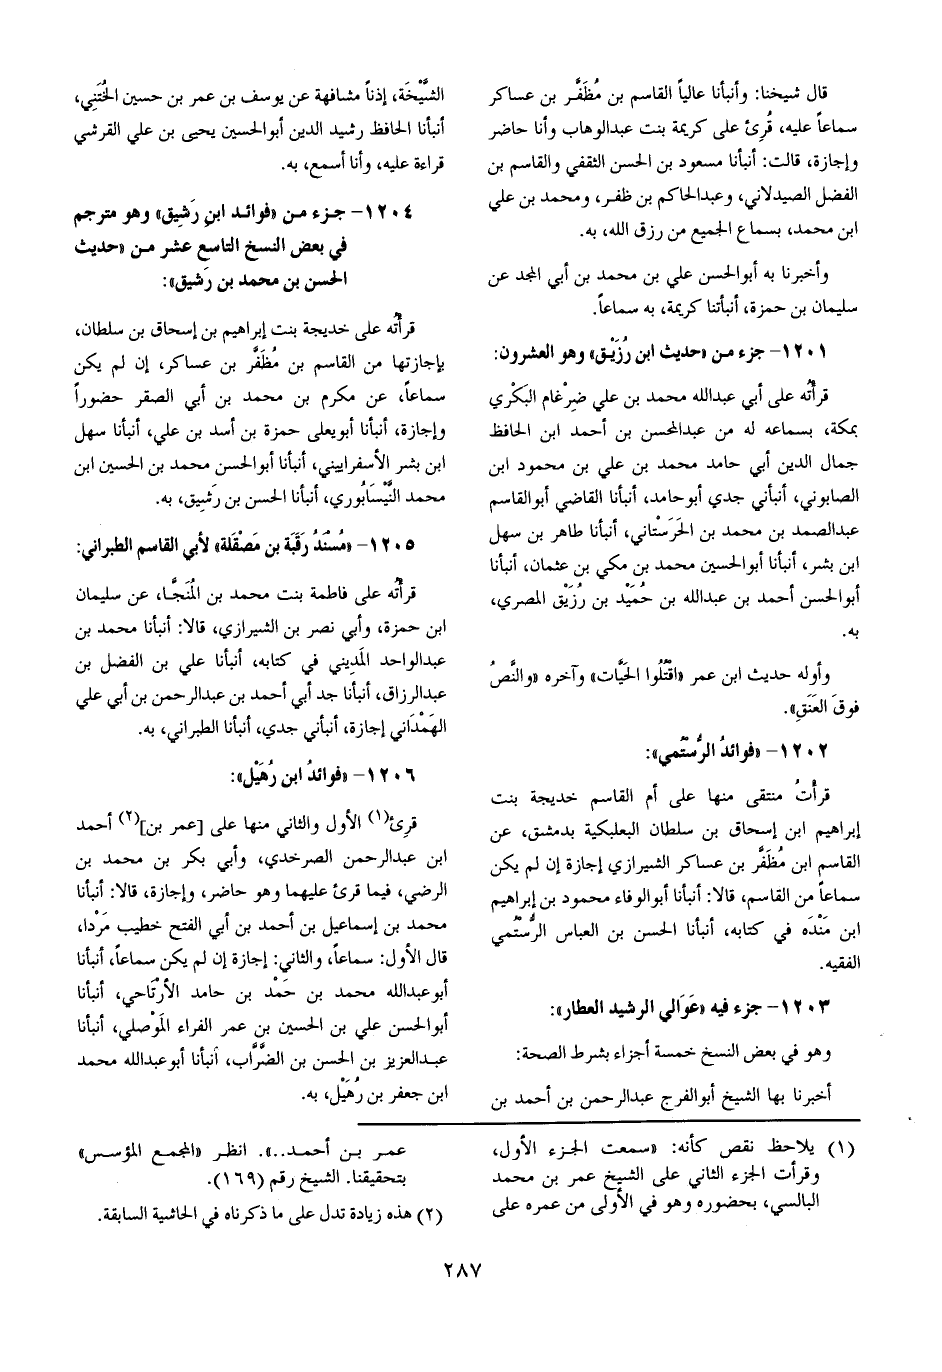 قال شيخنا: وأنبأنا عالياً القاسم بن مُظَفَّر بن عساكر
سماعاً عليه، قُرِئ على كريمة بنت عبدالوهاب وأنا حاضر
وإجازة، قالت: أنبأنا مسعود بن الحسن الثقفي والقاسم بن
الفضل الصيدلاني، وعبدالحاكم بن ظفر، ومحمد بن علي
ابن محمد، بسماع الجميع من رزق الله، به.
وأخبرنا به أبوالحسن علي بن محمد بن أبي المجد عن
سليمان بن حمزة، أنبأتنا كريمة، به سماعاً.
١٢٠١- جزء من «حديث ابن رُزَيْق» وهو العشرون:
قرأتُه على أبي عبدالله محمد بن علي ضِرْغام البَكْري
بمكة، بسماعه له من عبدالمحسن بن أحمد ابن الحافظ
جمال الدين أبي حامد محمد بن علي بن محمود ابن
الصابوني، أنبأني جدي أبوحامد، أنبأنا القاضي أبوالقاسم
عبدالصمد بن محمد بن الحَرَسْتاني، أنبأنا طاهر بن سهل
ابن بشر، أنبأنا أبوالحسين محمد بن مكي بن عثمان، أنبأنا
أبوالحسن أحمد بن عبدالله بن حُمَيْد بن رُزَيْق المصري،
به.
وأوله حديث ابن عمر «اقْتُلوا الحَيَّات» وآخره «والنَّصُ
فوقَ العَنَقِ».
١٢٠٢- «فوائدُ الرُّسْتُمي»:
قرأتُ منتقى منها على أم القاسم خديجة بنت
إبراهيم ابن إسحاق بن سلطان البعلبكية بدمشق، عن
القاسم ابن مُظَفَّر بن عساكر الشيرازي إجازة إن لم يكن
سماعاً من القاسم، قالا: أنبأنا أبوالوفاء محمود بن إبراهيم
ابن مَنْدَه في كتابه، أنبأنا الحسن بن العباس الرُّسْتُمي
الفقيه.
١٢٠٣- جزء فيه «عَوَالي الرشيد العطار»:
وهو في بعض النسخ خمسة أجزاء بشرط الصحة:
أخبرنا بها الشيخ أبوالفرج عبدالرحمن بن أحمد بن
الشَّيْخَة، إذناً مشافهة عن يوسف بن عمر بن حسين الخُتَني،
أنبأنا الحافظ رشيد الدين أبوالحسين يحيى بن علي القرشي
قراءة عليه، وأنا أسمع، به.
١٢٠٤- جزء من «فوائد ابن رَشِيق» وهو مترجم
في بعض النسخ التاسع عشر من «حديث
الحسن بن محمد بن رَشيق»:
قرأتُه على خديجة بنت إبراهيم بن إسحاق بن سلطان،
بإجازتها من القاسم بن مُظَفَّر بن عساكر، إن لم يكن
سماعاً، عن مكرم بن محمد بن أبي الصقر حضوراً
وإجازة، أنبأنا أبويعلى حمزة بن أسد بن علي، أنبأنا سهل
ابن بشر الأسفراييني، أنبأنا أبوالحسن محمد بن الحسين ابن
محمد النَّيْسَابُوري، أنبأنا الحسن بن رَشيق، به.
١٢٠٥- «مُسْنَدُ رَقَبَة بن مَصْقَلة» لأبي القاسم الطبراني:
قرأتُه على فاطمة بنت محمد بن المُنَجَّا، عن سليمان
ابن حمزة، وأبي نصر بن الشيرازي، قالا: أنبأنا محمد بن
عبدالواحد المَديني في كتابه، أنبأنا علي بن الفضل بن
عبدالرزاق، أنبأنا جد أبي أحمد بن عبدالرحمن بن أبي علي
الهَمْدَاني إجازة، أنبأني جدي، أنبأنا الطبراني، به.
١٢٠٦- «فوائدُ ابن رُهَيْل»:
قرئ(١) الأول والثاني منها على [عمر بن](٢) أحمد
ابن عبدالرحمن الصرخدي، وأبي بكر بن محمد بن
الرضي، فيما قرئ عليهما وهو حاضر، وإجازة، قالا: أنبأنا
محمد بن إسماعيل بن أحمد بن أبي الفتح خطيب مَرْدا،
قال الأول: سماعاً، والثاني: إجازة إن لم يكن سماعاً، أنبأنا
أبوعبدالله محمد بن حَمْد بن حامد الأَرْتَاحي، أنبأنا
أبوالحسن علي بن الحسين بن عمر الفراء المَوْصلي، أنبأنا
عبدالعزيز بن الحسن بن الضَّرَّاب، أنبأنا أبوعبدالله محمد
ابن جعفر بن رُهَيْل، به.
(١) يلاحظ نقص كأنه: «سمعت الجزء الأول،
وقرأت الجزء الثاني على الشيخ عمر بن محمد
البالسي، بحضوره وهو في الأولى من عمره على
عمر بن أحمد..». انظر «المجمع المؤسس»
بتحقيقنا. الشيخ رقم (١٦٩).
(٢) هذه زيادة تدل على ما ذكرناه في الحاشية السابقة.
٢٨٧